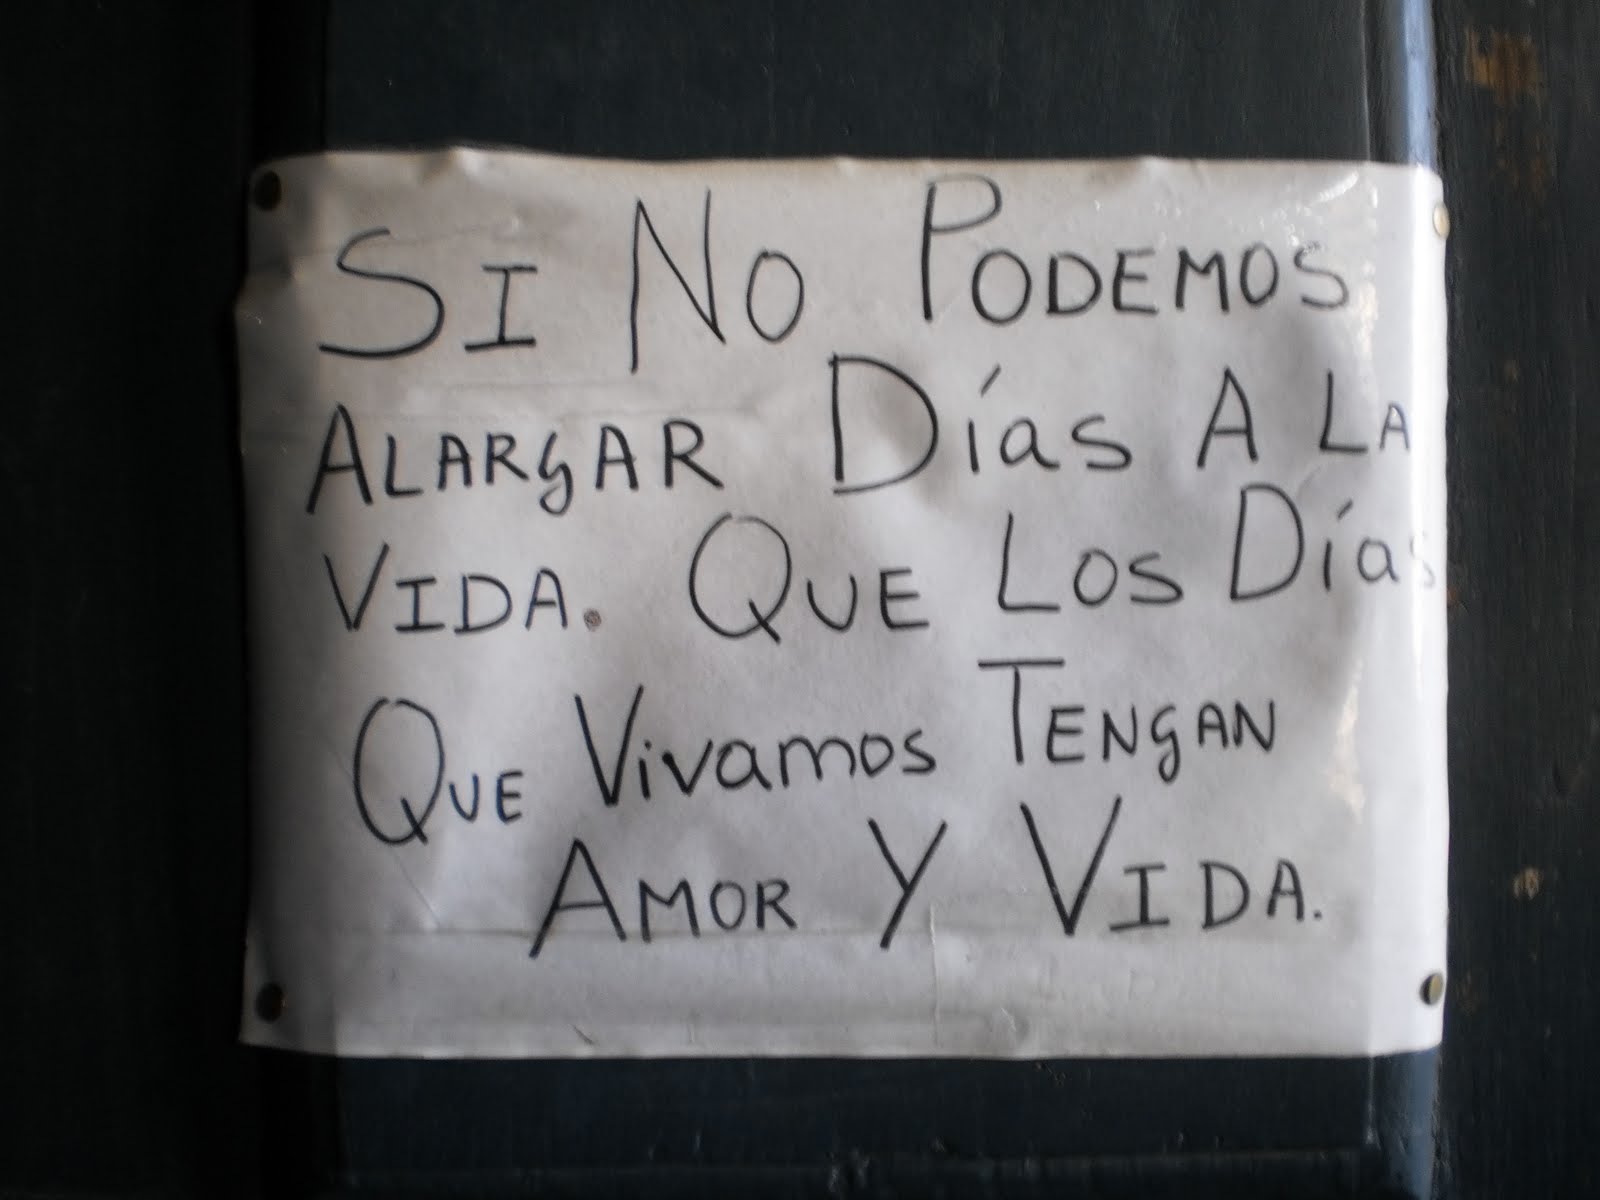 SI NO PODEMOS
ALARGAR DÍAS A LA
VIDA. QUE LOS DÍAS
QUE VIVAMOS TENGAN
AMOR Y VIDA.